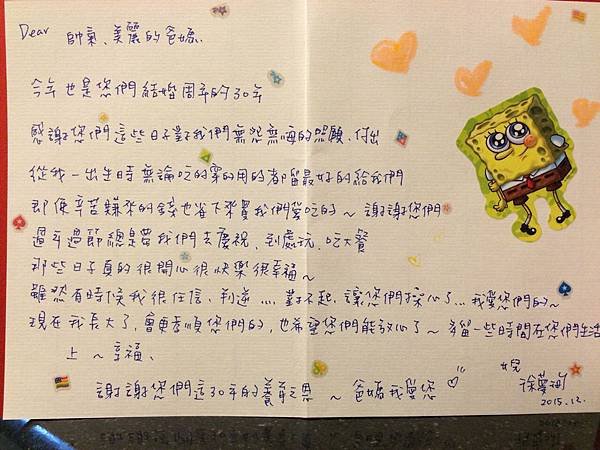 Dear 帥氣、美麗的爸媽、
今年也是您們結婚周年的30年
感謝您們這些日子對我們無怨無悔的照顧、付出
從我一出生時無論吃的穿的用的都留最好的給我們
即便辛苦賺來的錢也省下來買我們愛吃的～謝謝您們
過年過節總是帶我們去慶祝、到處玩、吃大餐
那些日子真的很開心很快樂很幸福～
雖然有時候我很任性、叛逆....對不起、讓您們操心了...我愛您們的～
現在我長大了、會更孝順您們的、也希望您們能放心了～多留一些時間在您們生活
上～幸福、
謝謝您們這30年的養育之恩 ～爸媽我愛您♡
女兒
徐
2015.12.